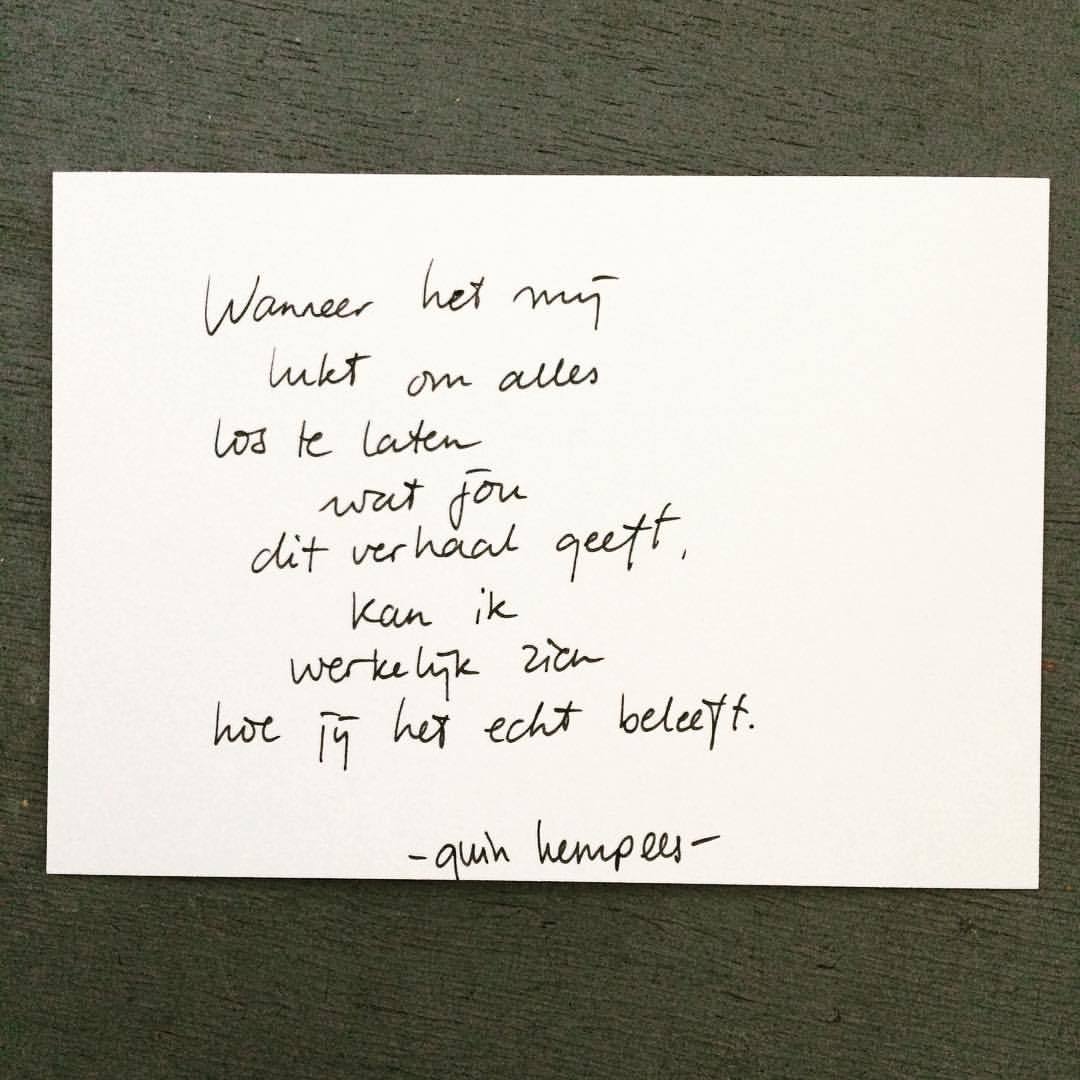 Wanneer het mij
lukt om alles
los te laten
wat jou
dit verhaal geeft,
kan ik
werkelijk zien
hoe jij het echt beleeft.
-quin hempees-